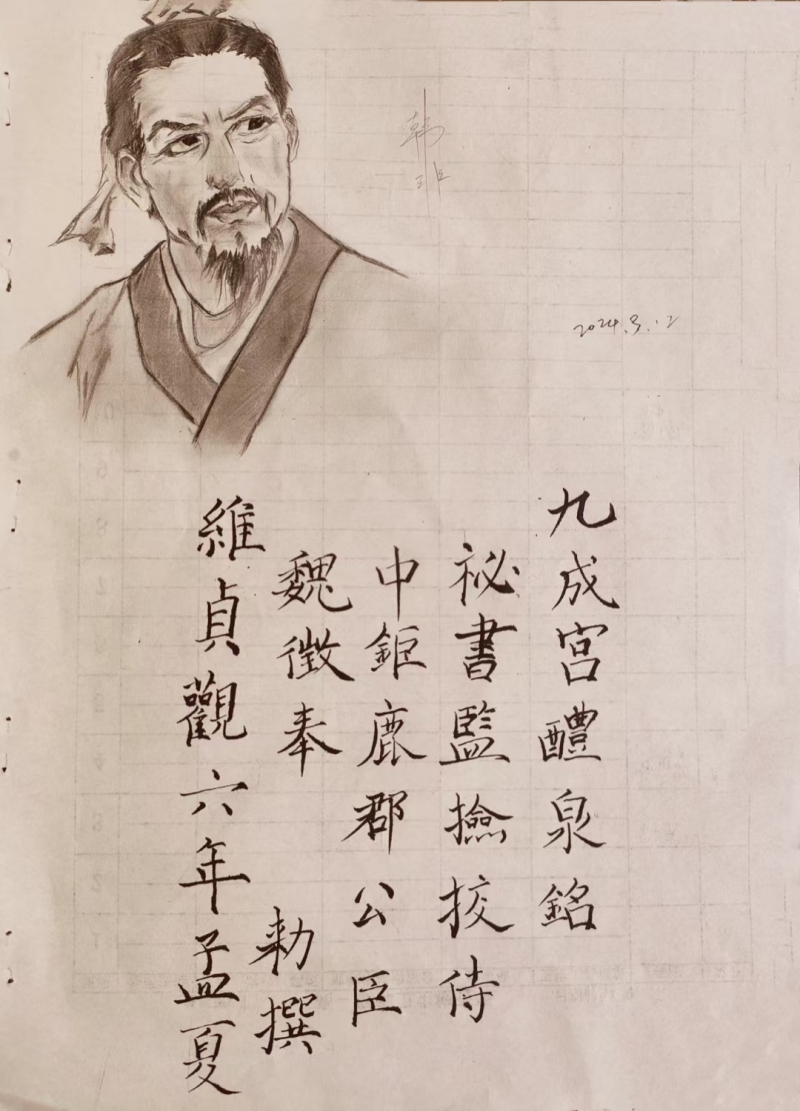 韩
非
2024.3.12
九成宮醴泉銘
祕書監撿挍侍
中鉅鹿郡公臣
魏徵奉
勑撰
維貞觀六年孟夏